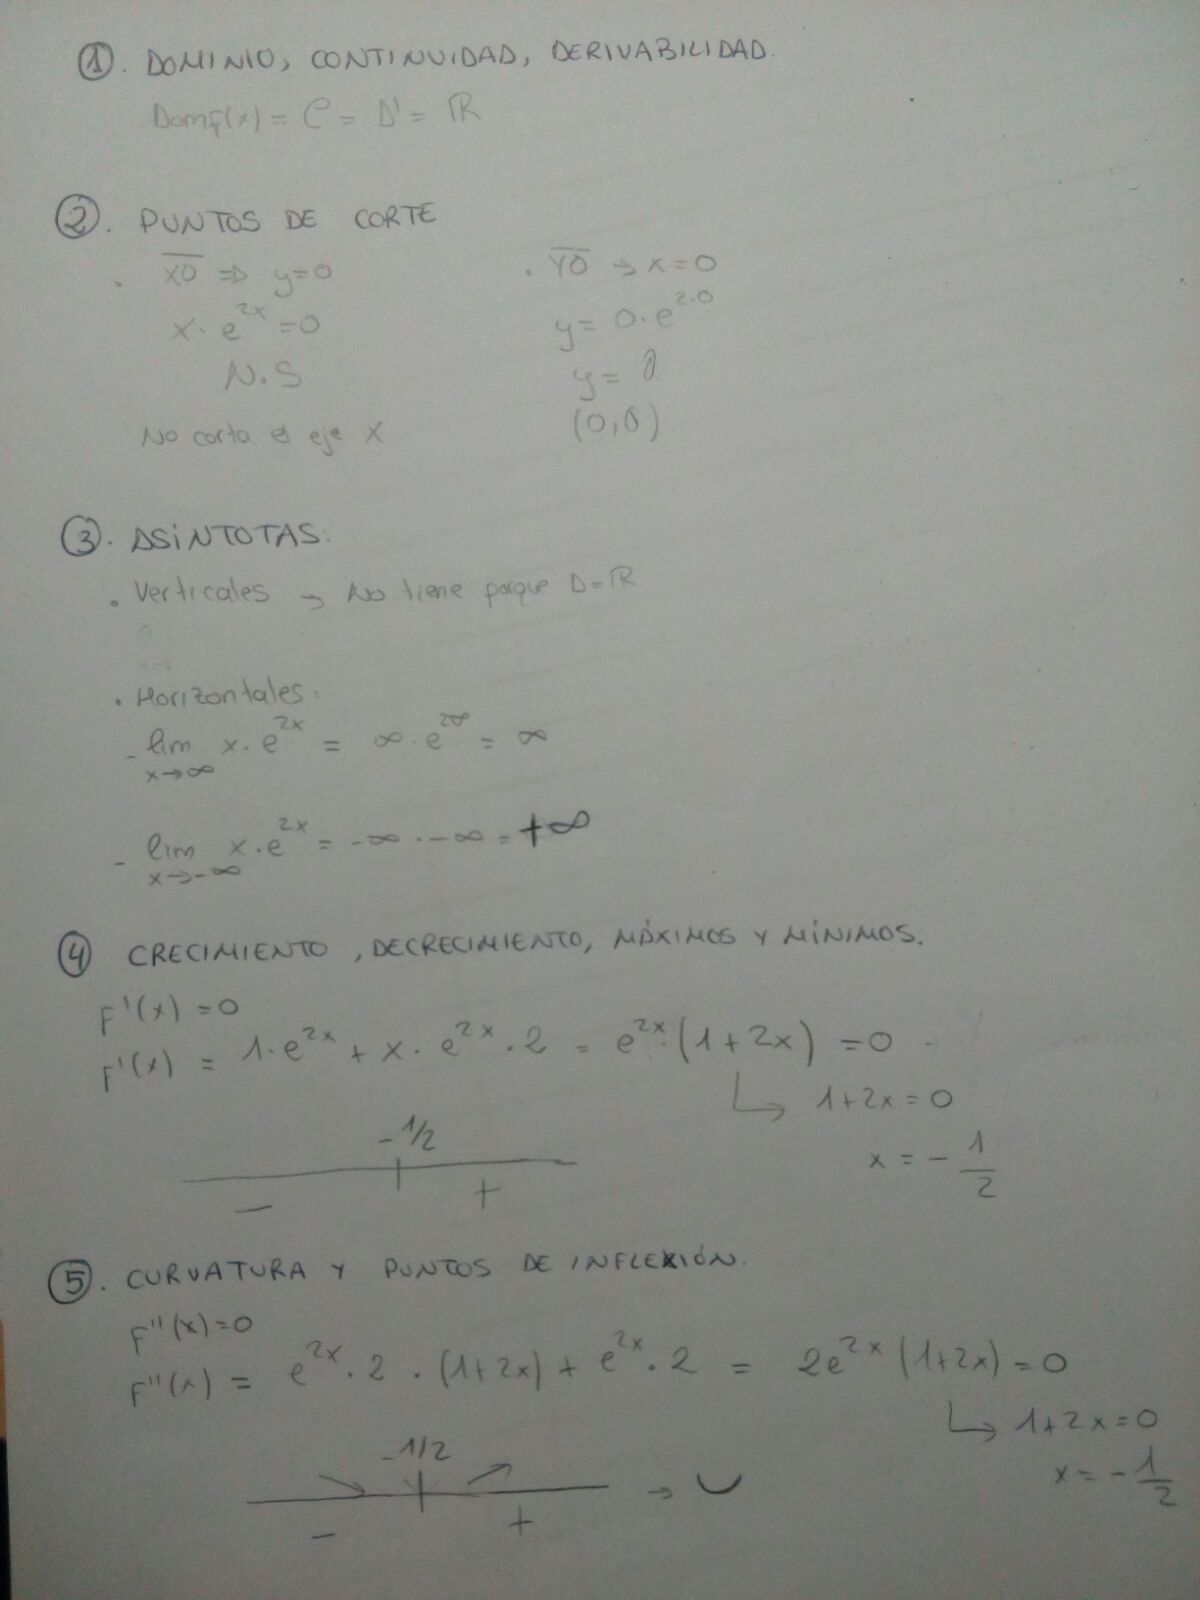 ① . DOMINIO, CONTINUIDAD, DERIVABILIDAD.
Domf(x) = C = D' = ℝ
② . PUNTOS DE CORTE
. X̅O̅ ⇒ y=0
x · e^2x = 0
N.S
No corta el eje X
. Y̅O̅ → x=0
y = 0 · e^2·0
y = 0
(0,0)
③ . ASÍNTOTAS:
. Verticales → No tiene porque D=ℝ.
. Horizontales:
- lim x · e^2x = ∞ · e^2∞ = ∞
x→∞
- lim x · e^2x = -∞ · -∞ = +∞
x→-∞
④ CRECIMIENTO, DECRECIMIENTO, MÁXIMOS Y MÍNIMOS.
F'(x) = 0
F'(x) = 1·e^2x + x · e^2x · 2 = e^2x · (1+2x) = 0
↳ 1+2x = 0
x = - 1/2
- 1/2
- +
⑤ . CURVATURA Y PUNTOS DE INFLEXIÓN.
F''(x) = 0
F''(x) = e^2x · 2 · (1+2x) + e^2x · 2 = 2e^2x (1+2x) = 0
↳ 1+2x = 0
x = - 1/2
- 1/2
→ ∪
- +